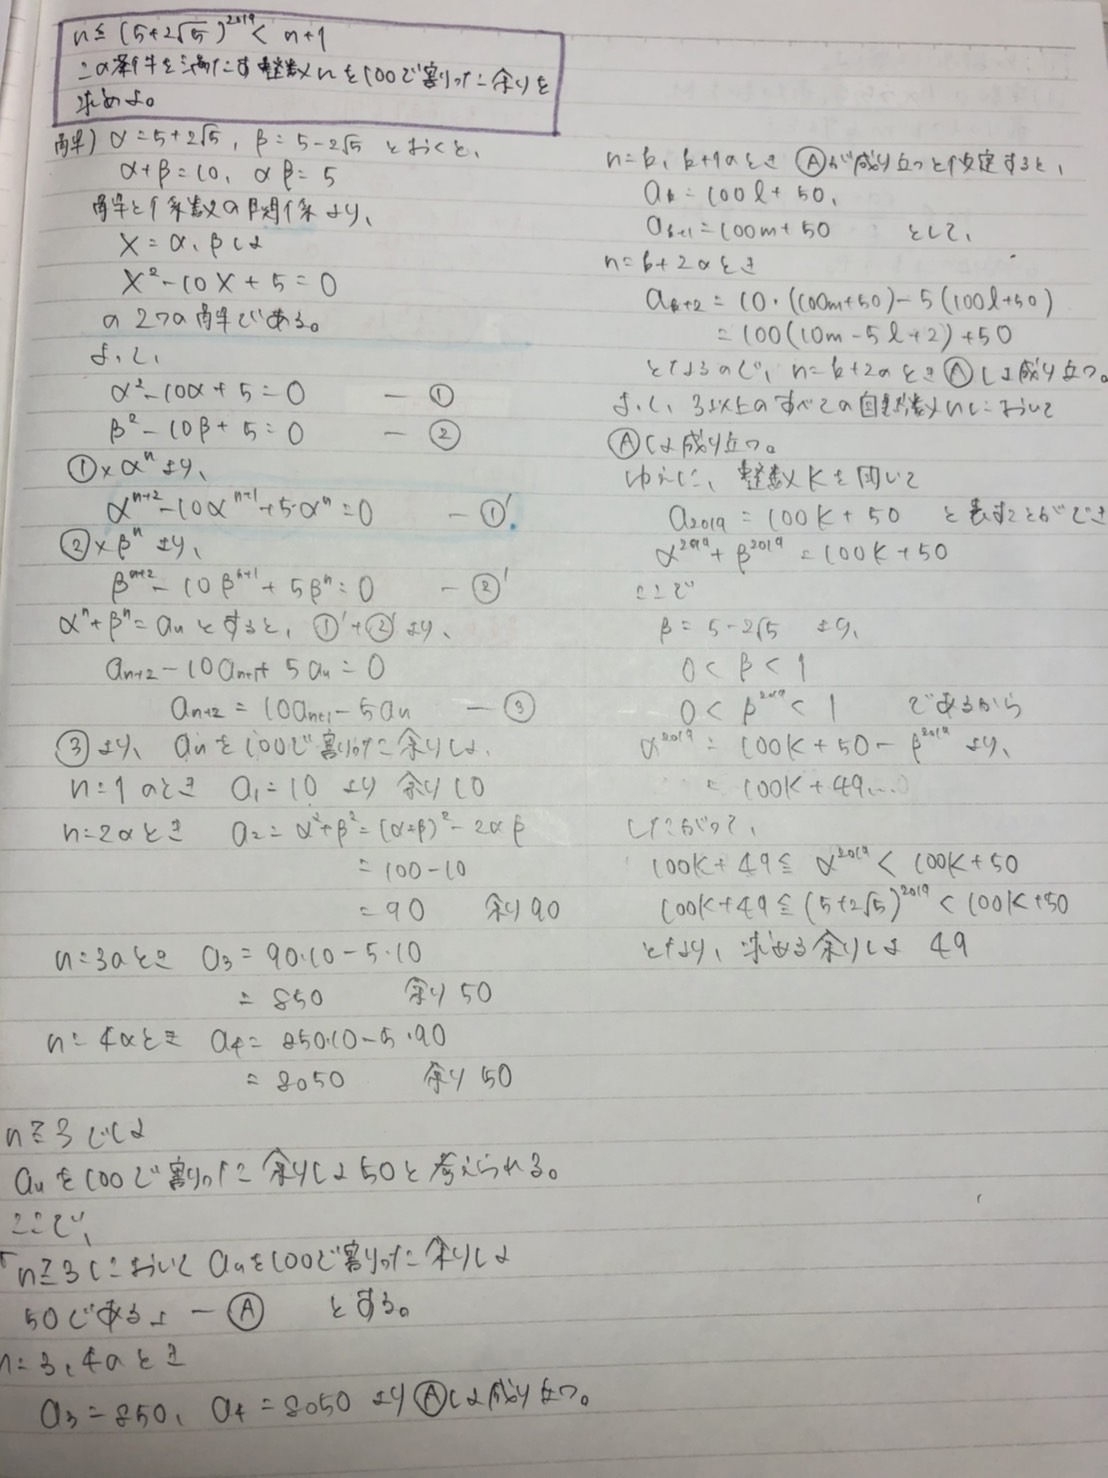 n≦(5+2√5)^2019 < n+1
この条件を満たす整数nを100で割った余りを
求めよ。
解) α=5+2√5, β=5-2√5 とおくと、
α+β=10, αβ=5
解と係数の関係より、
X=α, βは
X²-10X+5=0
の2つの解である。
よって、
α²-10α+5=0 ー①
β²-10β+5=0 ー②
①×α^n より、
α^(n+2)-10α^(n+1)+5・α^n=0 ー①'
②×β^n より、
β^(n+2)-10β^(n+1)+5β^n=0 ー②'
α^n+β^n=a_n とすると、①'+②' より、
a_(n+2)-10a_(n+1)+5a_n=0
a_(n+2)=10a_(n+1)-5a_n ー③
③より、a_nを100で割った余りは、
n=1のとき a_1=10 より 余り10
n=2のとき a_2=α²+β²=(α+β)²-2αβ
=100-10
=90 余り90
n=3のとき a_3=90・10-5・10
=850 余り50
n=4のとき a_4=850・10-5・90
=8050 余り50
n≧3では
a_nを100で割った余りは50と考えられる。
ここで、
「n≧3においてa_nを100で割った余りは
50である」ーⒶ とする。
n=3,4のとき
a_3=850, a_4=8050 よりⒶは成り立つ。
n=k, k+1のとき Ⓐが成り立つと仮定すると、
a_k=100l+50,
a_(k+1)=100m+50 として、
n=k+2のとき
a_(k+2)=10・(100m+50)-5(100l+50)
=100(10m-5l+2)+50
となるので、n=k+2のときⒶは成り立つ。
よって、3以上のすべての自然数nにおいて
Ⓐは成り立つ。
ゆえに、整数Kを用いて
a_2019=100K+50 と表すことができ
α^2019+β^2019=100K+50
ここで
β=5-2√5 より、
0<β<1
0<β^2019<1 であるから
α^2019=100K+50-β^2019 より、
=100K+49...
したがって、
100K+49≦α^2019<100K+50
100K+49≦(5+2√5)^2019<100K+50
となり、求める余りは 49